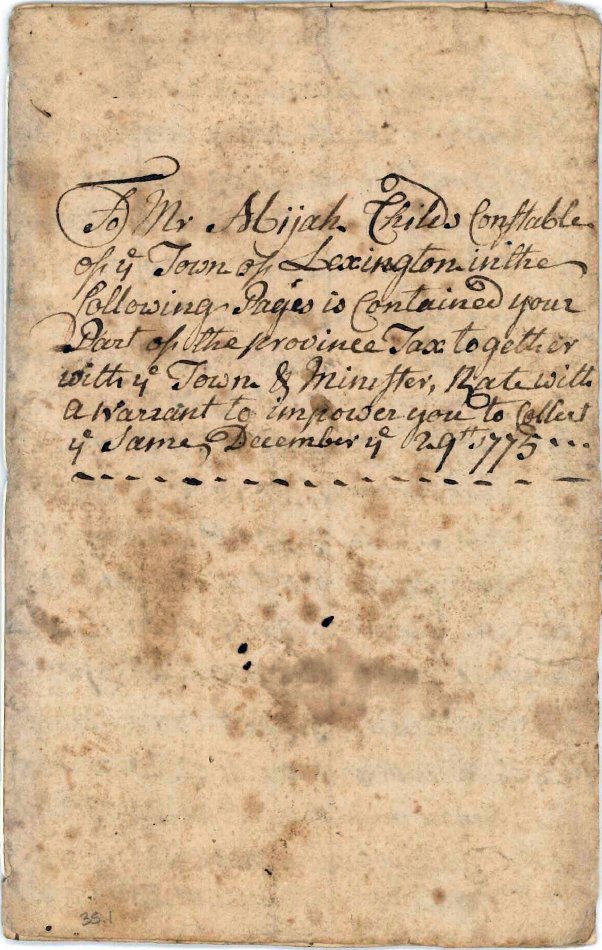 To Mr Abijah Childs Constable
of yͤ Town of Lexington in the
following Pages is Contained your
Part of the province Tax together
with yͤ Town & Minister, Rate with
a warrant to impower you to Collect
yͤ Same, December yͤ 29th 1775
35.1